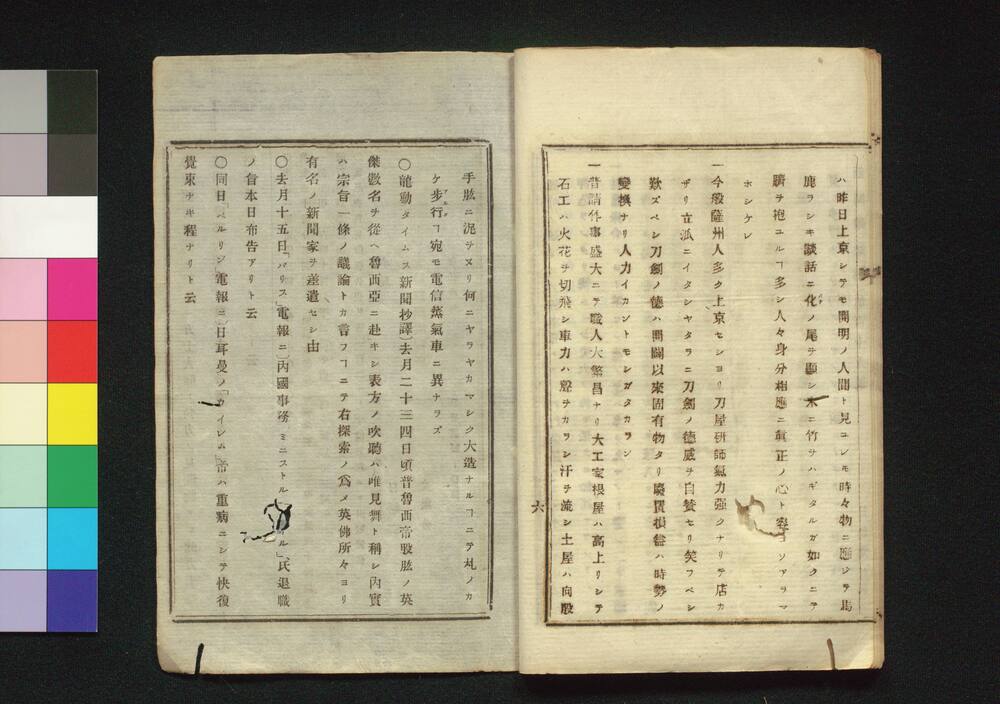 ハ昨日上京シテモ開明ノ人間ト見ユレモ時々物ニ應ジテ馬
鹿ラシキ談話ニ化ノ尾ヲ顯シ木ニ竹サハギタルガ如クニテ
臍ヲ抱ユルヿ多シ人々身分相應ニ眞正ノ心ト ソアラマ
ホシケレ
一今般薩州人多ク上京セシヨリ刀屋研師氣力强クナリテ店カ
ザリ立派ニイタシヤタラニ刀劔ノ德威ヲ自賛セリ笑フベシ
歎ズベシ刀劔ノ德ハ開闢以來固有物タリ廢置損益ハ時勢ノ
變換ナリ人力イカントモシガタカラン
一普請作事盛大ニテ職人大繁昌ナリ大工家根屋ハ高上リシテ
石工ハ火花ヲ切飛シ車力ハ聲ヲカラシ汗ヲ流シ土屋ハ向股
六
手肱ニ泥ヲヌリ何ニヤラヤカマシク大造ナルヿニテ㐧ノカ
ケ步行ヿ宛モ電信蒸氣車ニ異ナラズ
〇龍動タイムス新聞抄譯〕去月二十三四日頃普魯西帝股肱ノ英
傑數名ヲ從ヘ魯西亞ニ赴キシ表方ノ吹聽ハ唯見舞ト稱シ內實
ハ宗旨一條ノ議論トカ言フヿニテ右探索ノ爲メ英佛所々ヨリ
有名ノ新聞家ヲ差遣セシ由
〇去月十五日「パリス」電報ニ〕內國事務ミニストル ル」氏退職
ノ旨本日布告アリト云
〇同日「ベルリン」電報ニ〕日耳曼ノ「カイレム」帝ハ重病ニシテ快復
覺束ナキ程ナリト云